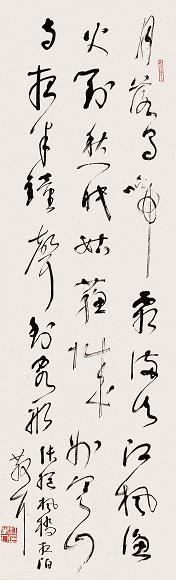 月落烏啼霜滿天江楓漁
火對愁眠姑蘇城外寒山
寺夜半鐘聲到客船
張繼楓橋夜泊